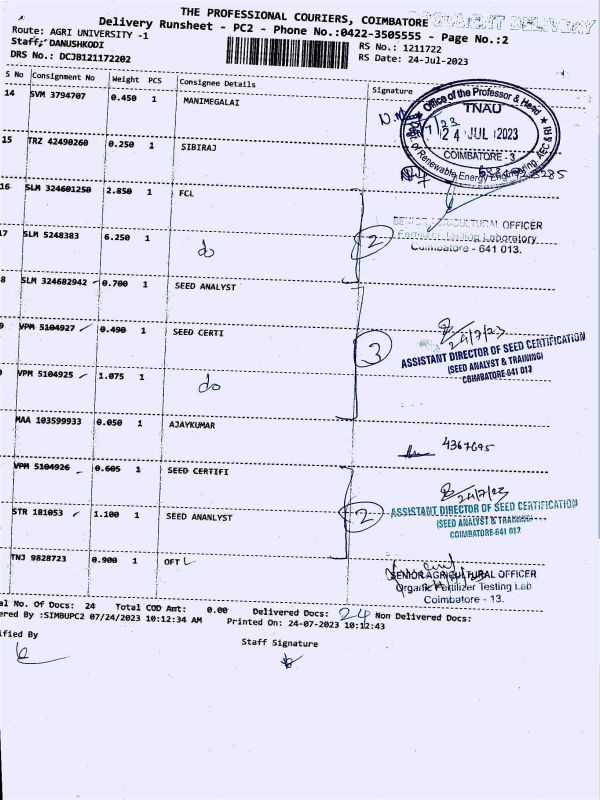 THE PROFESSIONAL COURIERS, COIMBATORE
Delivery Runsheet - PC2 - Phone No.:0422-3505555 - Page No.:2
Route: AGRI UNIVERSITY -1
Staff: DANUSHKODI
DRS No.: DCJB121172202
RS No.: 1211722
RS Date: 24-Jul-2023
S No Consignment No Weight PCS Consignee Details Signature
14 SVM 3794707 0.450 1 MANIMEGALAI
Office of the Professor & Head
TNAU
24 JUL 2023
COIMBATORE - 3
of Renewable Energy Engineering AEC RI
15 TRZ 42490260 0.250 1 SIBIRAJ
16 SLM 324601250 2.850 1 FCL
SENIOR AGRICULTURAL OFFICER
Fertilizer Testing Laboratory
Coimbatore - 641 013.
2
7 SLM 5248383 6.250 1 do
8 SLM 324682942 0.700 1 SEED ANALYST
9 VPM 5104927 0.490 1 SEED CERTI
3
24/7/23
ASSISTANT DIRECTOR OF SEED CERTIFICATION
(SEED ANALYST & TRAINING)
COIMBATORE-641 013
VPM 5104925 1.075 1 do
MAA 103599933 0.050 1 AJAYKUMAR
4367695
VPM 5104926 0.605 1 SEED CERTIFI
24/7/23
2
ASSISTANT DIRECTOR OF SEED CERTIFICATION
(SEED ANALYST & TRAINING)
COIMBATORE-641 013
STR 181053 1.100 1 SEED ANANLYST
TNJ 9828723 0.900 1 OFT
SENIOR AGRICULTURAL OFFICER
Organic Fertilizer Testing Lab
Coimbatore - 13.
al No. Of Docs: 24 Total COD Amt: 0.00 Delivered Docs: 24 Non Delivered Docs:
ered By :SIMBUPC2 07/24/2023 10:12:34 AM Printed On: 24-07-2023 10:12:43
ified By
Staff Signature